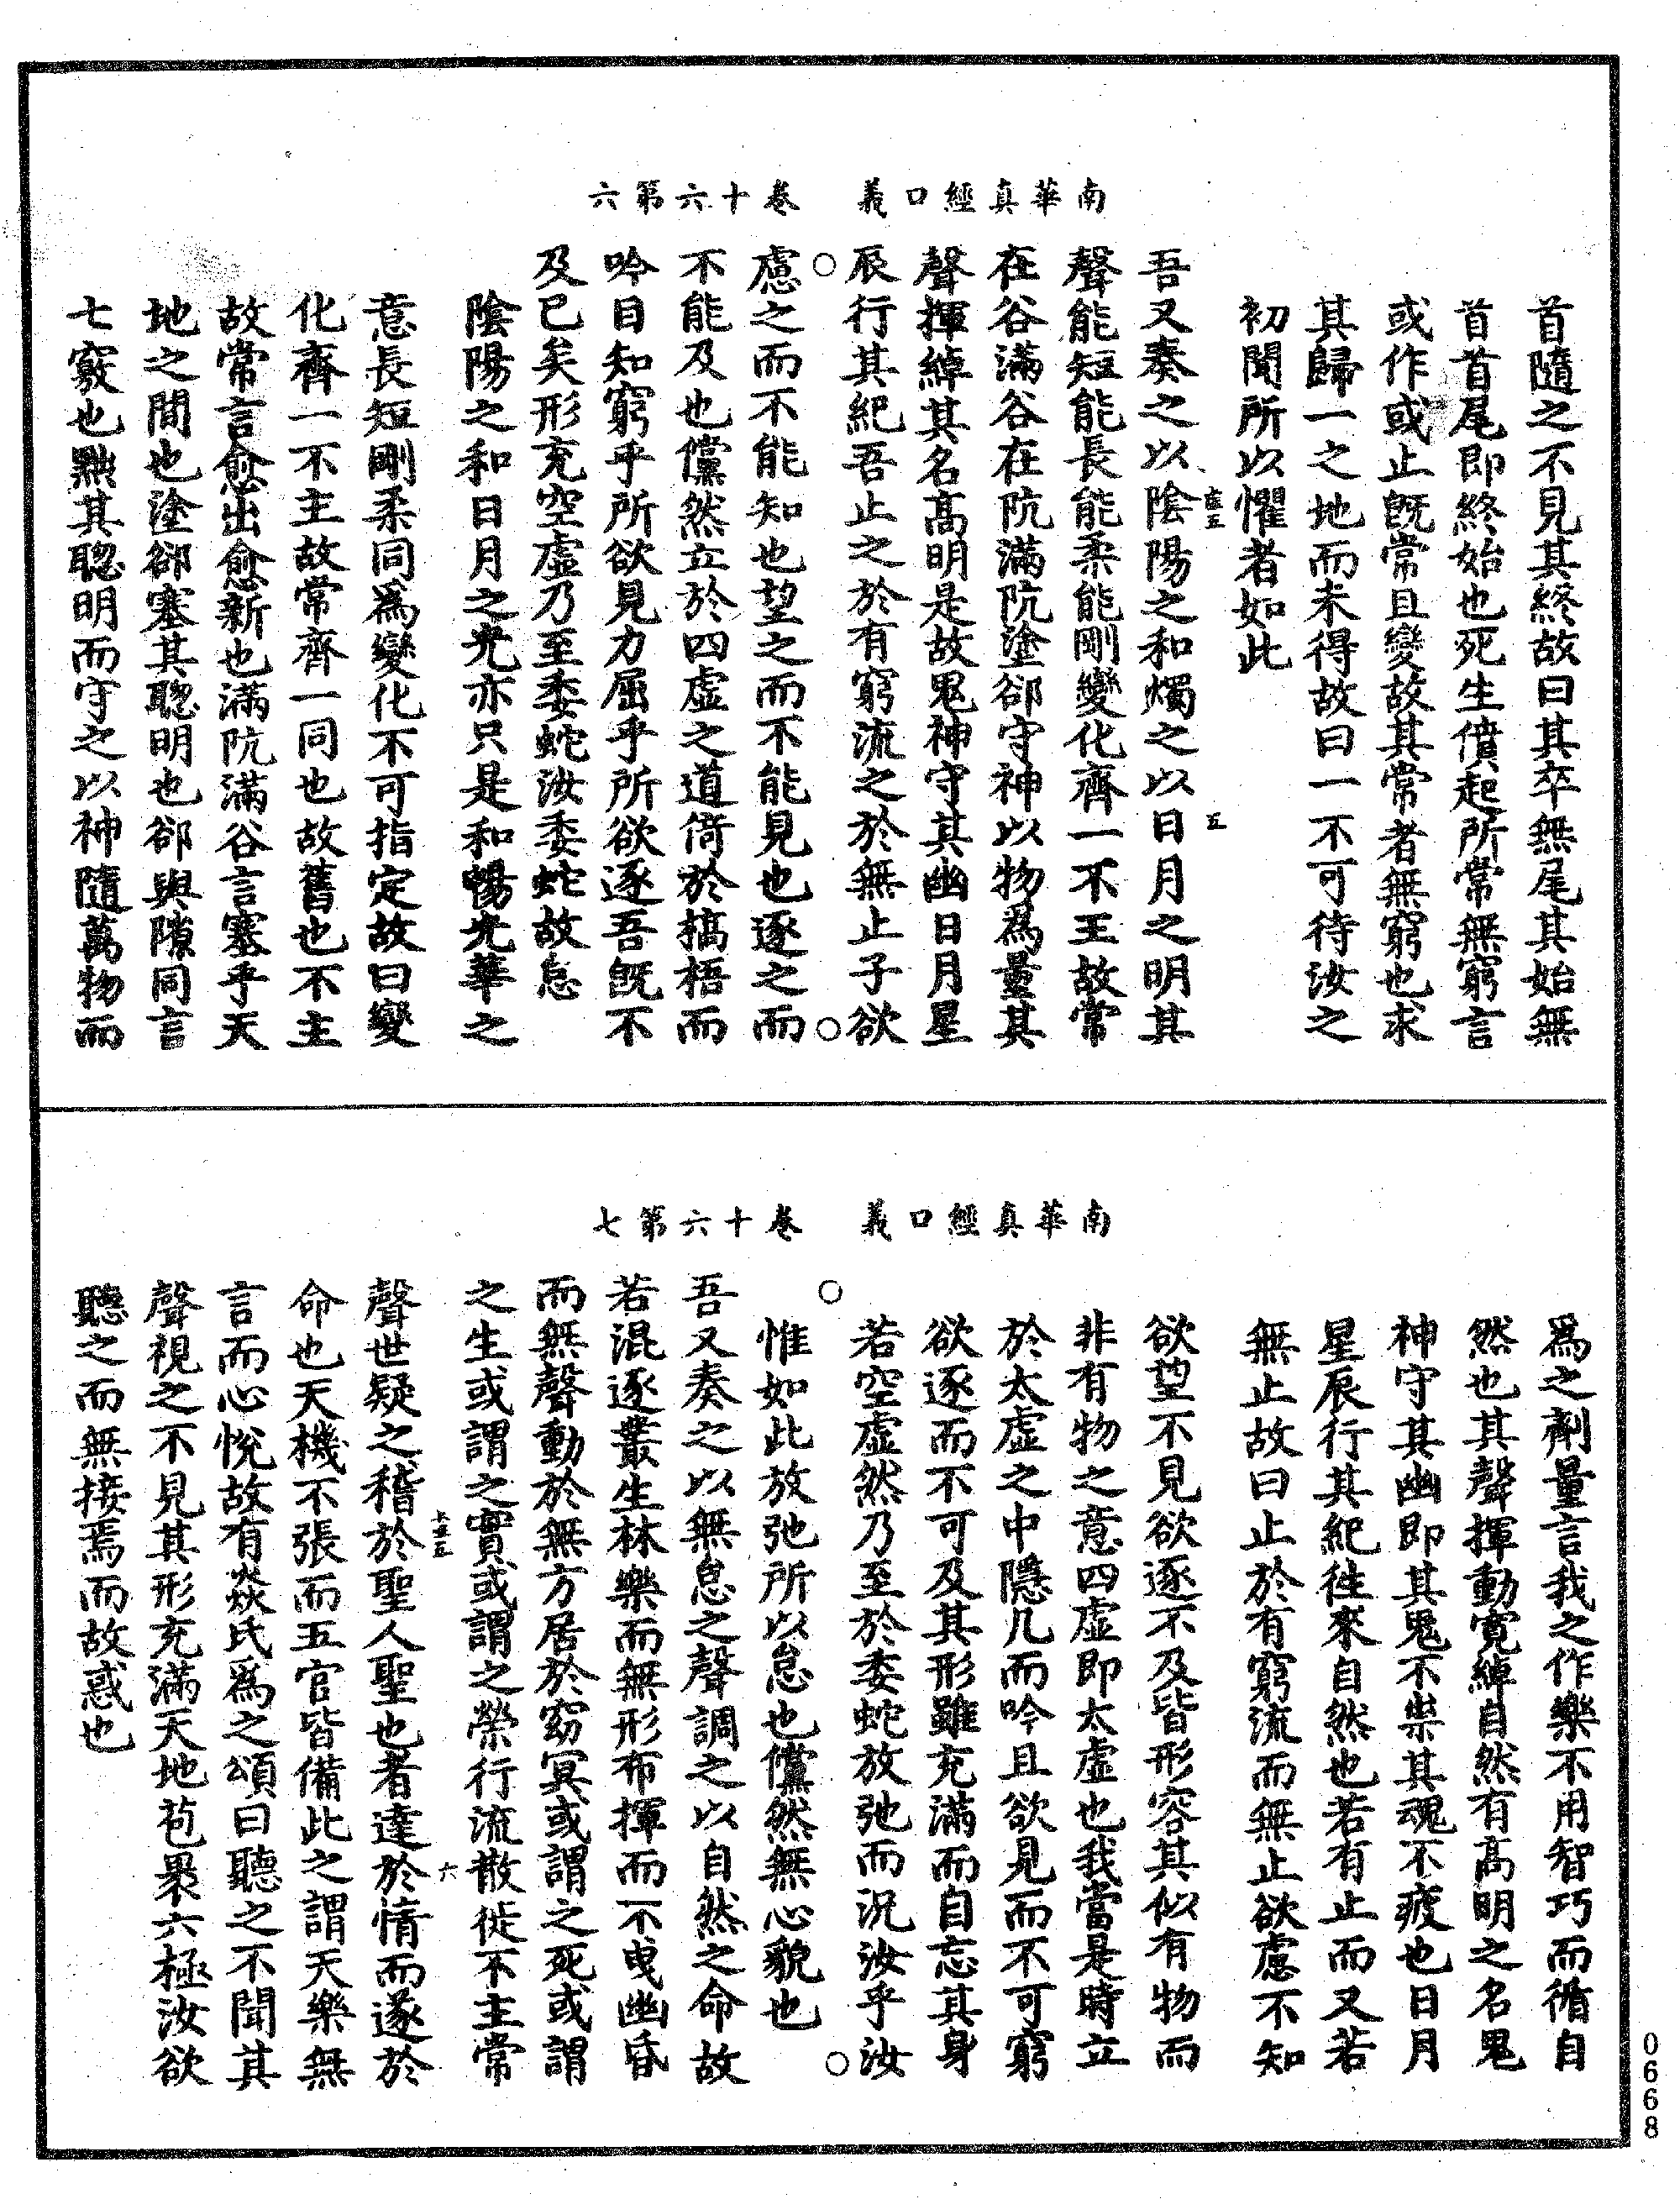 南華真經口義　卷十六第六
首隨之不見其終故曰其卒無尾其始無
首首尾即終始也死生僨起所常無窮言
或作或止既常且變故其常者無窮也求
其歸一之地而未得故曰一不可待汝之
初聞所以懼者如此
吾又奏之以陰陽之和燭之以日月之明其
聲能短能長能柔能剛變化齊一不主故常
在谷滿谷在阬滿阬塗郤守神以物爲量其
聲揮綽其名高明是故鬼神守其幽日月星
辰行其紀吾止之於有窮流之於無止子欲
慮之而不能知也望之而不能見也逐之而
不能及也儻然立於四虛之道倚於槁梧而
吟目知窮乎所欲見力屈乎所欲逐吾既不
及已矣形充空虛乃至委蛇汝委蛇故怠
陰陽之和日月之光亦只是和暢光華之
意長短剛柔同爲變化不可指定故曰變
化齊一不主故常齊一同也故舊也不主
故常言愈出愈新也滿阬滿谷言塞乎天
地之間也塗郤塞其聰明也郤與隙同言
七竅也黜其聰明而守之以神隨萬物而
南華真經口義　卷十六第七
爲之劑量言我之作樂不用智巧而循自
然也其聲揮動寬綽自然有高明之名鬼
神守其幽即其鬼不祟其魂不疲也日月
星辰行其紀徃來自然也若有止而又若
無止故曰止於有窮流而無止欲慮不知
欲望不見欲逐不及皆形容其似有物而
非有物之意四虛即太虛也我當是時立
於太虛之中隱几而吟且欲見而不可窮
欲逐而不可及其形雖充滿而自忘其身
若空虛然乃至於委蛇放弛而況汝乎汝
惟如此放弛所以怠也儻然無心貌也
吾又奏之以無怠之聲調之以自然之命故
若混逐叢生林樂而無形布揮而不曳幽昏
而無聲動於無方居於窈冥或謂之死或謂
之生或謂之實或謂之榮行流散徙不主常
聲世疑之稽於聖人聖也者達於情而遂於
命也天機不張而五官皆備此之謂天樂無
言而心悅故有焱氏爲之頌曰聽之不聞其
聲視之不見其形充滿天地苞裹六極汝欲
聽之而無接焉而故惑也
五
六
0668